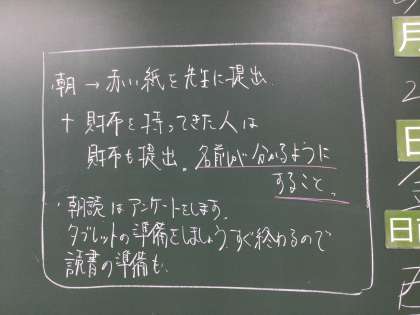 ・朝 → 赤い紙を先生に提出
+ 財布を持ってきた人は
財布も提出。名前が分かるように
すること。
・朝読はアンケートをします。
タブレットの準備をしましょう。すぐ終わるので
読書の準備も
月
日
日直